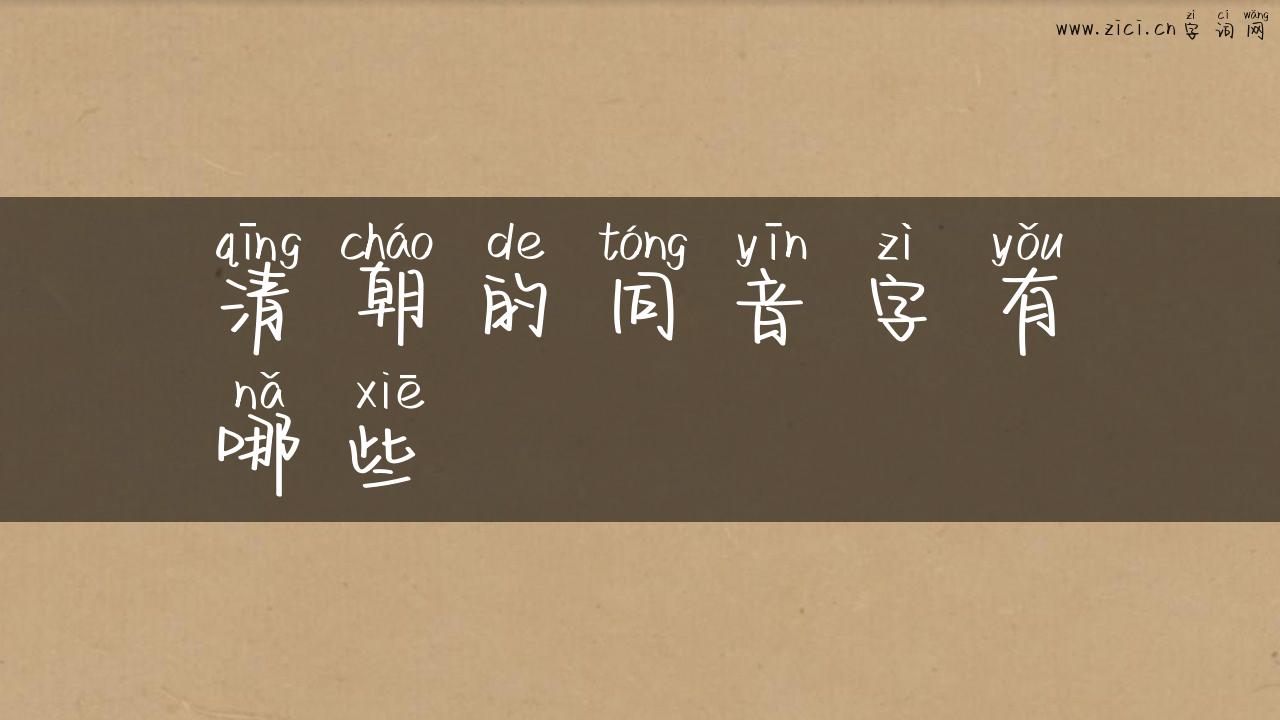 zì cí wǎng
www.zici.cn 字 词 网
qīng cháo de tóng yīn zì yǒu
清 朝 的 同 音 字 有
nǎ xiē
哪 些